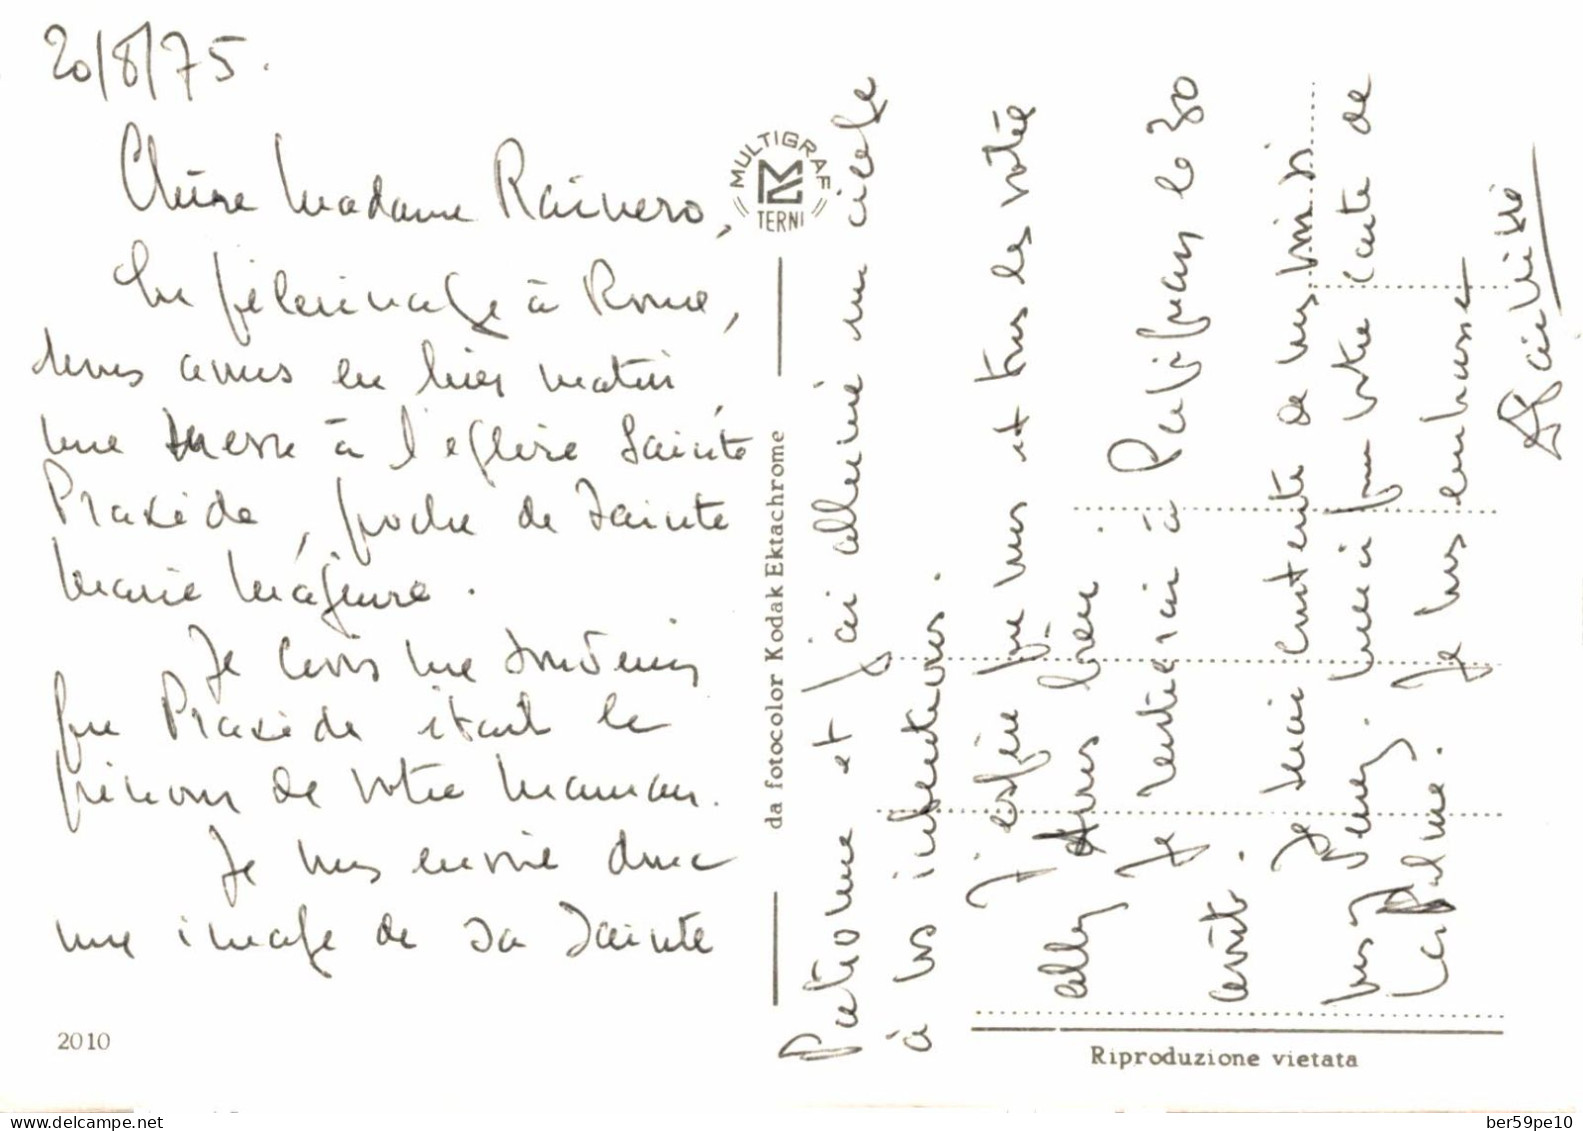 20/8/75.
Chère Madame Rainero,
En pélerinage à Rome,
nous avons eu hier matin
une messe à l'église Sainte
Praxède, proche de Sainte
Marie Majeure.
Je crois me souvenir
que Praxède était le
prénom de votre maman.
Je vous envoie donc
une image de sa Sainte
Patronne et j'ai allumé un cierge
à vos intentions.
J'espère que vous et tous les vôtres
allez bien.
Je rentrerai à Perpignan le 30
août.
Je serai contente de vous voir si
vous venez. Merci pour votre carte de
La Palme. Je vous embrasse
MULTIGRAF
TERNI
da fotocolor Kodak Ektachrome
2010
Riproduzione vietata
www.delcampe.net
ber59pe10